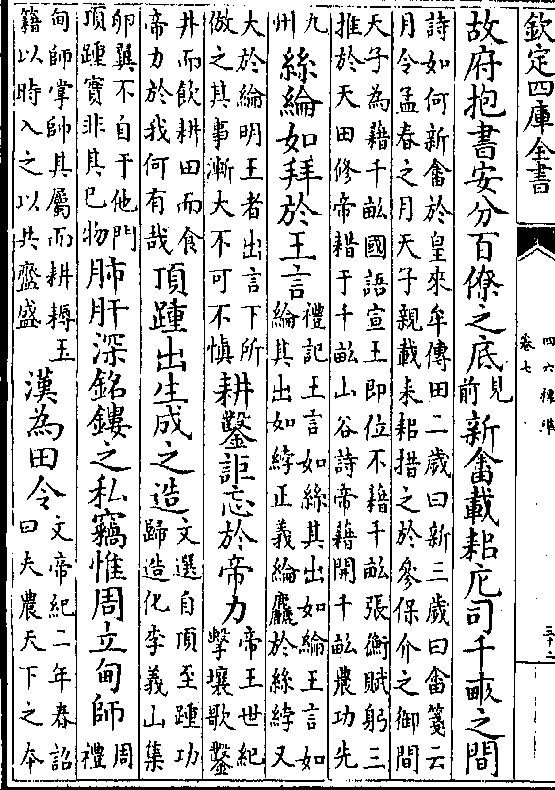 欽定四庫全書
四六標準
卷七
三十二
故府抱書安分百僚之底見前新畬載耜庀司千畮之間
詩如何新畬於皇來牟傳田二歲曰新三歲曰畬箋云
月令孟春之月天子親載耒耜措之於參保介之御間
天子為藉千畝國語宣王即位不藉千畝張衡賦躬三
推於天田修帝耤于千畝山谷詩帝藉開千畝農功先
九
州
絲綸如拜於王言
禮記王言如絲其出如綸王言如
綸其出如綍正義綸麤於絲綍又
大於綸明王者出言下所
倣之其事漸大不可不慎
耕鑿詎忘於帝力
帝王世紀
擊壤歌鑿
井而飲耕田而食
帝力於我何有哉
頂踵出生成之造
文選自頂至踵功
歸造化李義山集
卵翼不自于他門
頂踵實非其已物
肺肝深銘鏤之私竊惟周立甸師
周
禮
甸師掌帥其屬而耕耨王
籍以時入之以共齍盛
漢為田令
文帝紀二年春詔
曰夫農天下之本